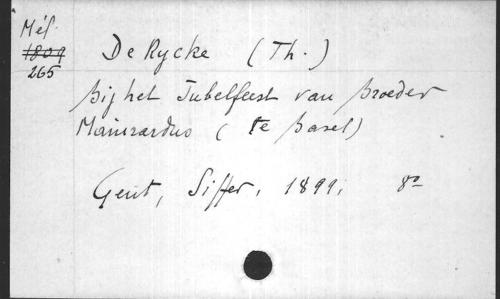 Mél.
1809
265
De Rycke (Th.)
Bij het Jubelfeest van Broeder
Mainrardus (te Basel)
Gent, Siffer, 1899, 8º